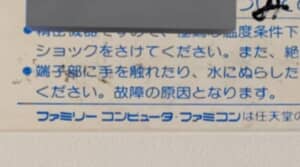 ●精密機器ですので、極端な温度条件下
ショックをさけてください。また、絶
●端子部に手を触れたり、水にぬらした
ください。故障の原因となります。
ファミリー コンピュータ・ファミコンは任天堂の